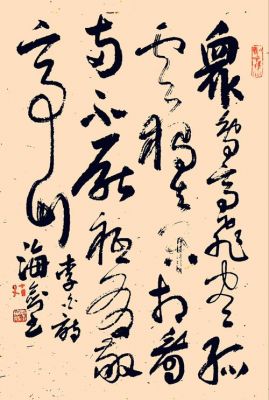 眾鳥高飛盡孤
雲獨去閒相看
兩不厭祗有敬
亭山
李白詩
海